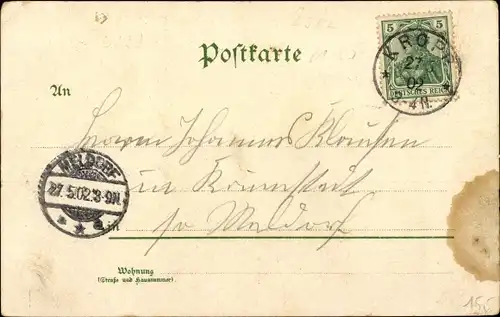 Postkarte
5 5
DEUTSCHES REICH
KROPP
27
4N.
An
Herrn Johannes Klaußen
in
MELDORF
27.5.02.8-9N.
in
Meldorf
Wohnung
(Straße und Hausnummer)
15,-